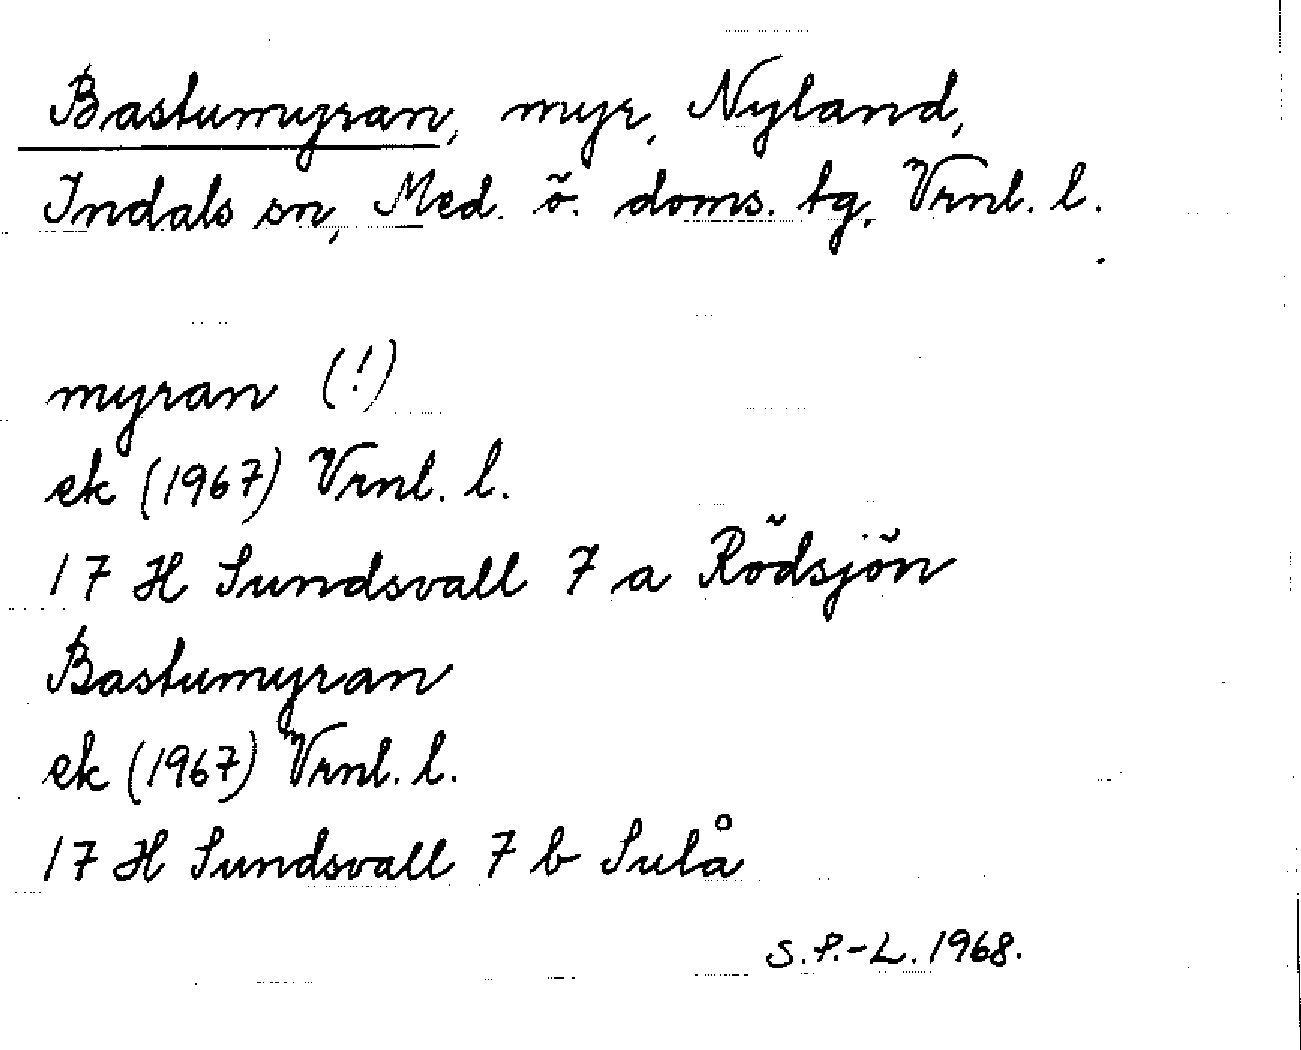 Bastumyran, myr, Nyland,
Indals sn, Med. ö. doms. tg. Vrnl. l.
myran (!)
ek (1967) Vrnl. l.
17 H Sundsvall 7 a Rödsjön
Bastumyran
ek (1967) Vrnl. l.
17 H Sundsvall 7 b Sulå
S. P.-L. 1968.